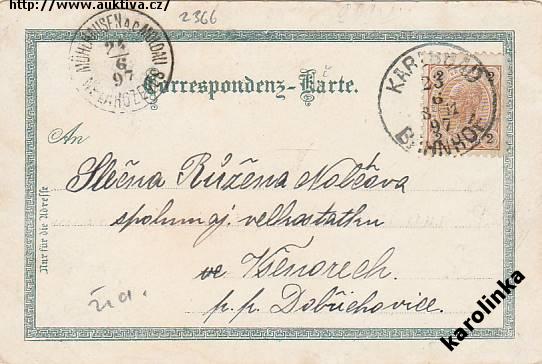 http://www.auktiva.cz/
2366
MÜHLHAUSEN A.D. MOLDAU
24
6
97
Correspondenz-Karte.
KARLSBAD
23
6
97
BAHNHOF
An
Slečna Růžena Nolčova
spolumaj. velkostatku
ve Všenorech.
p. p. Dobřichovice.
Nur für die Adresse
karolinka